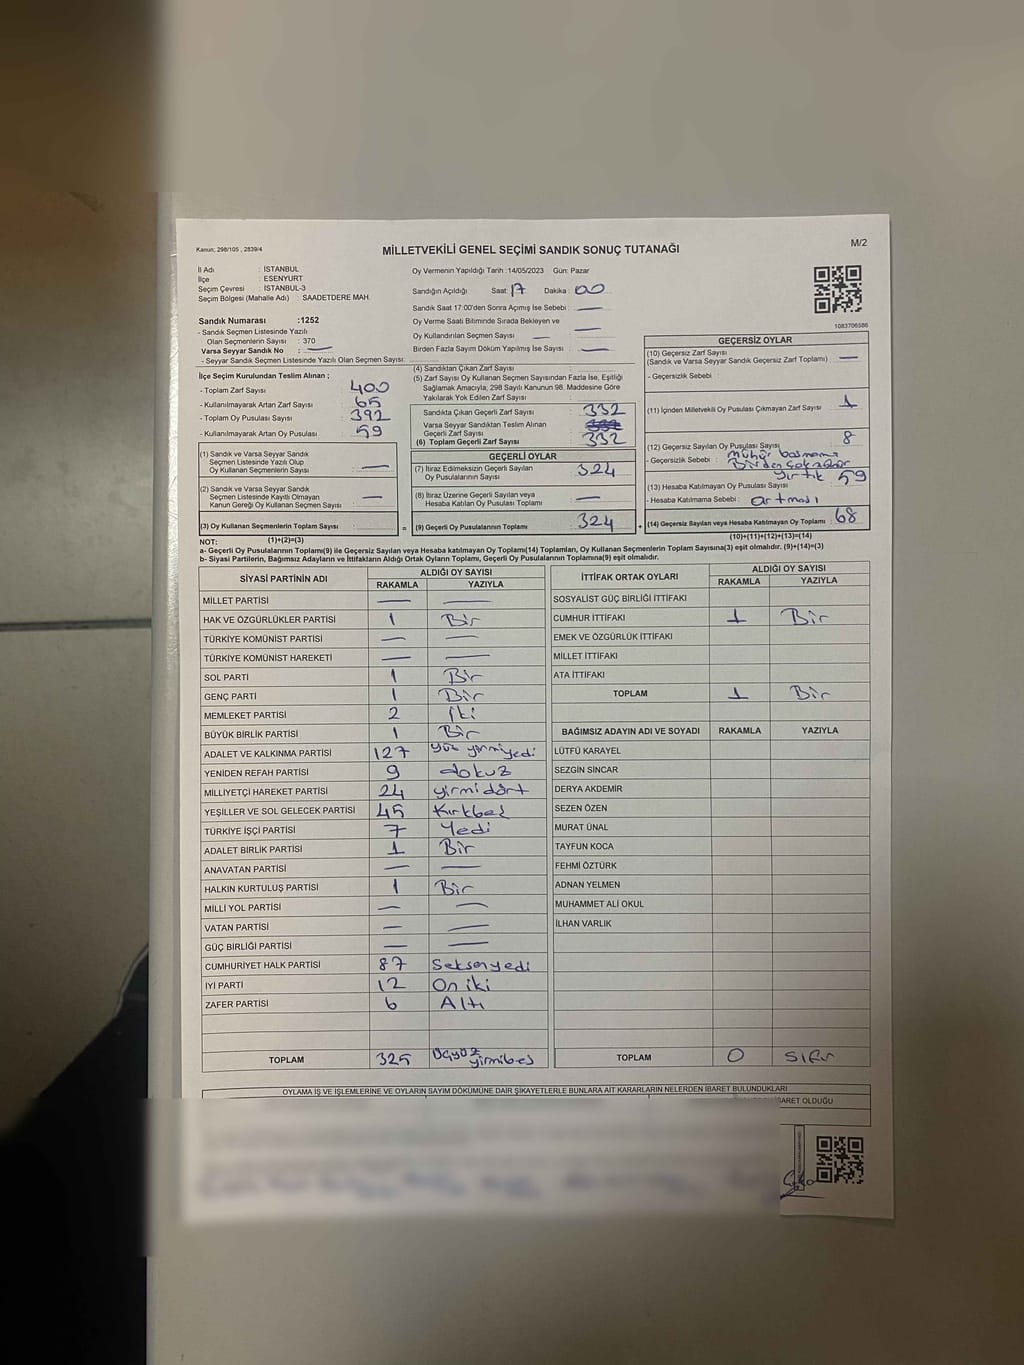 Kanun: 298/105 , 2839/4
MİLLETVEKİLİ GENEL SEÇİMİ SANDIK SONUÇ TUTANAĞI
M/2
İl Adı : İSTANBUL
İlçe : ESENYURT
Seçim Çevresi : İSTANBUL-3
Seçim Bölgesi (Mahalle Adı) : SAADETDERE MAH.
Oy Vermenin Yapıldığı Tarih :14/05/2023 Gün: Pazar
Sandığın Açıldığı Saat: 17 Dakika : 00
Sandık Saat 17:00'den Sonra Açımış İse Sebebi : —
Oy Verme Saati Bitiminde Sırada Bekleyen ve
Oy Kullandırılan Seçmen Sayısı : —
Birden Fazla Sayım Döküm Yapılmış İse Sayısı : —
1083706586
Sandık Numarası :1252
- Sandık Seçmen Listesinde Yazılı
Olan Seçmenlerin Sayısı : 370
Varsa Seyyar Sandık No : —
- Seyyar Sandık Seçmen Listesinde Yazılı Olan Seçmen Sayısı:
İlçe Seçim Kurulundan Teslim Alınan ;
- Toplam Zarf Sayısı : 400
- Kullanılmayarak Artan Zarf Sayısı : 65
- Toplam Oy Pusulası Sayısı : 392
- Kullanılmayarak Artan Oy Pusulası : 59
(1) Sandık ve Varsa Seyyar Sandık
Seçmen Listesinde Yazılı Olup
Oy Kullanan Seçmenlerin Sayısı : —
(2) Sandık ve Varsa Seyyar Sandık
Seçmen Listesinde Kayıtlı Olmayan
Kanun Gereği Oy Kullanan Seçmen Sayısı : —
(3) Oy Kullanan Seçmenlerin Toplam Sayısı :
(4) Sandıktan Çıkan Zarf Sayısı :
(5) Zarf Sayısı Oy Kullanan Seçmen Sayısından Fazla İse, Eşitliği
Sağlamak Amacıyla; 298 Sayılı Kanunun 98. Maddesine Göre
Yakılarak Yok Edilen Zarf Sayısı :
Sandıkta Çıkan Geçerli Zarf Sayısı : 332
Varsa Seyyar Sandıktan Teslim Alınan
Geçerli Zarf Sayısı :
(6) Toplam Geçerli Zarf Sayısı : 332
GEÇERLİ OYLAR
(7) İtiraz Edilmeksizin Geçerli Sayılan
Oy Pusulasının Sayısı : 324
(8) İtiraz Üzerine Geçerli Sayılan veya
Hesaba Katılan Oy Pusulası Toplamı : —
= (9) Geçerli Oy Pusulalarının Toplamı : 324 +
GEÇERSİZ OYLAR
(10) Geçersiz Zarf Sayısı
(Sandık ve Varsa Seyyar Sandık Geçersiz Zarf Toplamı) : —
- Geçersizlik Sebebi :
(11) İçinden Milletvekili Oy Pusulası Çıkmayan Zarf Sayısı : 1
(12) Geçersiz Sayılan Oy Pusulası Sayısı : 8
- Geçersizlik Sebebi : mühür basmama
Birden çok mühür
yırtık
(13) Hesaba Katılmayan Oy Pusulası Sayısı : 59
- Hesaba Katılmama Sebebi : artması
(14) Geçersiz Sayılan veya Hesaba Katılmayan Oy Toplamı : 68
NOT: (1)+(2)=(3)
(10)+(11)+(12)+(13)=(14)
a- Geçerli Oy Pusulalarının Toplamı(9) ile Geçersiz Sayılan veya Hesaba katılmayan Oy Toplamı(14) Toplamları, Oy Kullanan Seçmenlerin Toplam Sayısına(3) eşit olmalıdır. (9)+(14)=(3)
b- Siyasi Partilerin, Bağımsız Adayların ve İttifakların Aldığı Ortak Oyların Toplamı, Geçerli Oy Pusulalarının Toplamına(9) eşit olmalıdır.
SİYASİ PARTİNİN ADI ALDIĞI OY SAYISI
RAKAMLA YAZIYLA
MİLLET PARTİSİ — —
HAK VE ÖZGÜRLÜKLER PARTİSİ 1 Bir
TÜRKİYE KOMÜNİST PARTİSİ — —
TÜRKİYE KOMÜNİST HAREKETİ — —
SOL PARTİ 1 Bir
GENÇ PARTİ 1 Bir
MEMLEKET PARTİSİ 2 İki
BÜYÜK BİRLİK PARTİSİ 1 Bir
ADALET VE KALKINMA PARTİSİ 127 yüz yirmiyedi
YENİDEN REFAH PARTİSİ 9 dokuz
MİLLİYETÇİ HAREKET PARTİSİ 24 yirmidört
YEŞİLLER VE SOL GELECEK PARTİSİ 45 Kırkbeş
TÜRKİYE İŞÇİ PARTİSİ 7 Yedi
ADALET BİRLİK PARTİSİ 1 Bir
ANAVATAN PARTİSİ — —
HALKIN KURTULUŞ PARTİSİ 1 Bir
MİLLİ YOL PARTİSİ — —
VATAN PARTİSİ — —
GÜÇ BİRLİĞİ PARTİSİ — —
CUMHURİYET HALK PARTİSİ 87 Seksenyedi
İYİ PARTİ 12 On iki
ZAFER PARTİSİ 6 Altı
TOPLAM 325 Üçyüz yirmibeş
İTTİFAK ORTAK OYLARI ALDIĞI OY SAYISI
RAKAMLA YAZIYLA
SOSYALİST GÜÇ BİRLİĞİ İTTİFAKI
CUMHUR İTTİFAKI 1 Bir
EMEK VE ÖZGÜRLÜK İTTİFAKI
MİLLET İTTİFAKI
ATA İTTİFAKI
TOPLAM 1 Bir
BAĞIMSIZ ADAYIN ADI VE SOYADI RAKAMLA YAZIYLA
LÜTFÜ KARAYEL
SEZGİN SİNCAR
DERYA AKDEMİR
SEZEN ÖZEN
MURAT ÜNAL
TAYFUN KOCA
FEHMİ ÖZTÜRK
ADNAN YELMEN
MUHAMMET ALİ OKUL
İLHAN VARLIK
TOPLAM 0 SIFIR
OYLAMA İŞ VE İŞLEMLERİNE VE OYLARIN SAYIM DÖKÜMÜNE DAİR ŞİKAYETLERLE BUNLARA AİT KARARLARIN NELERDEN İBARET BULUNDUKLARI
OLDUĞU